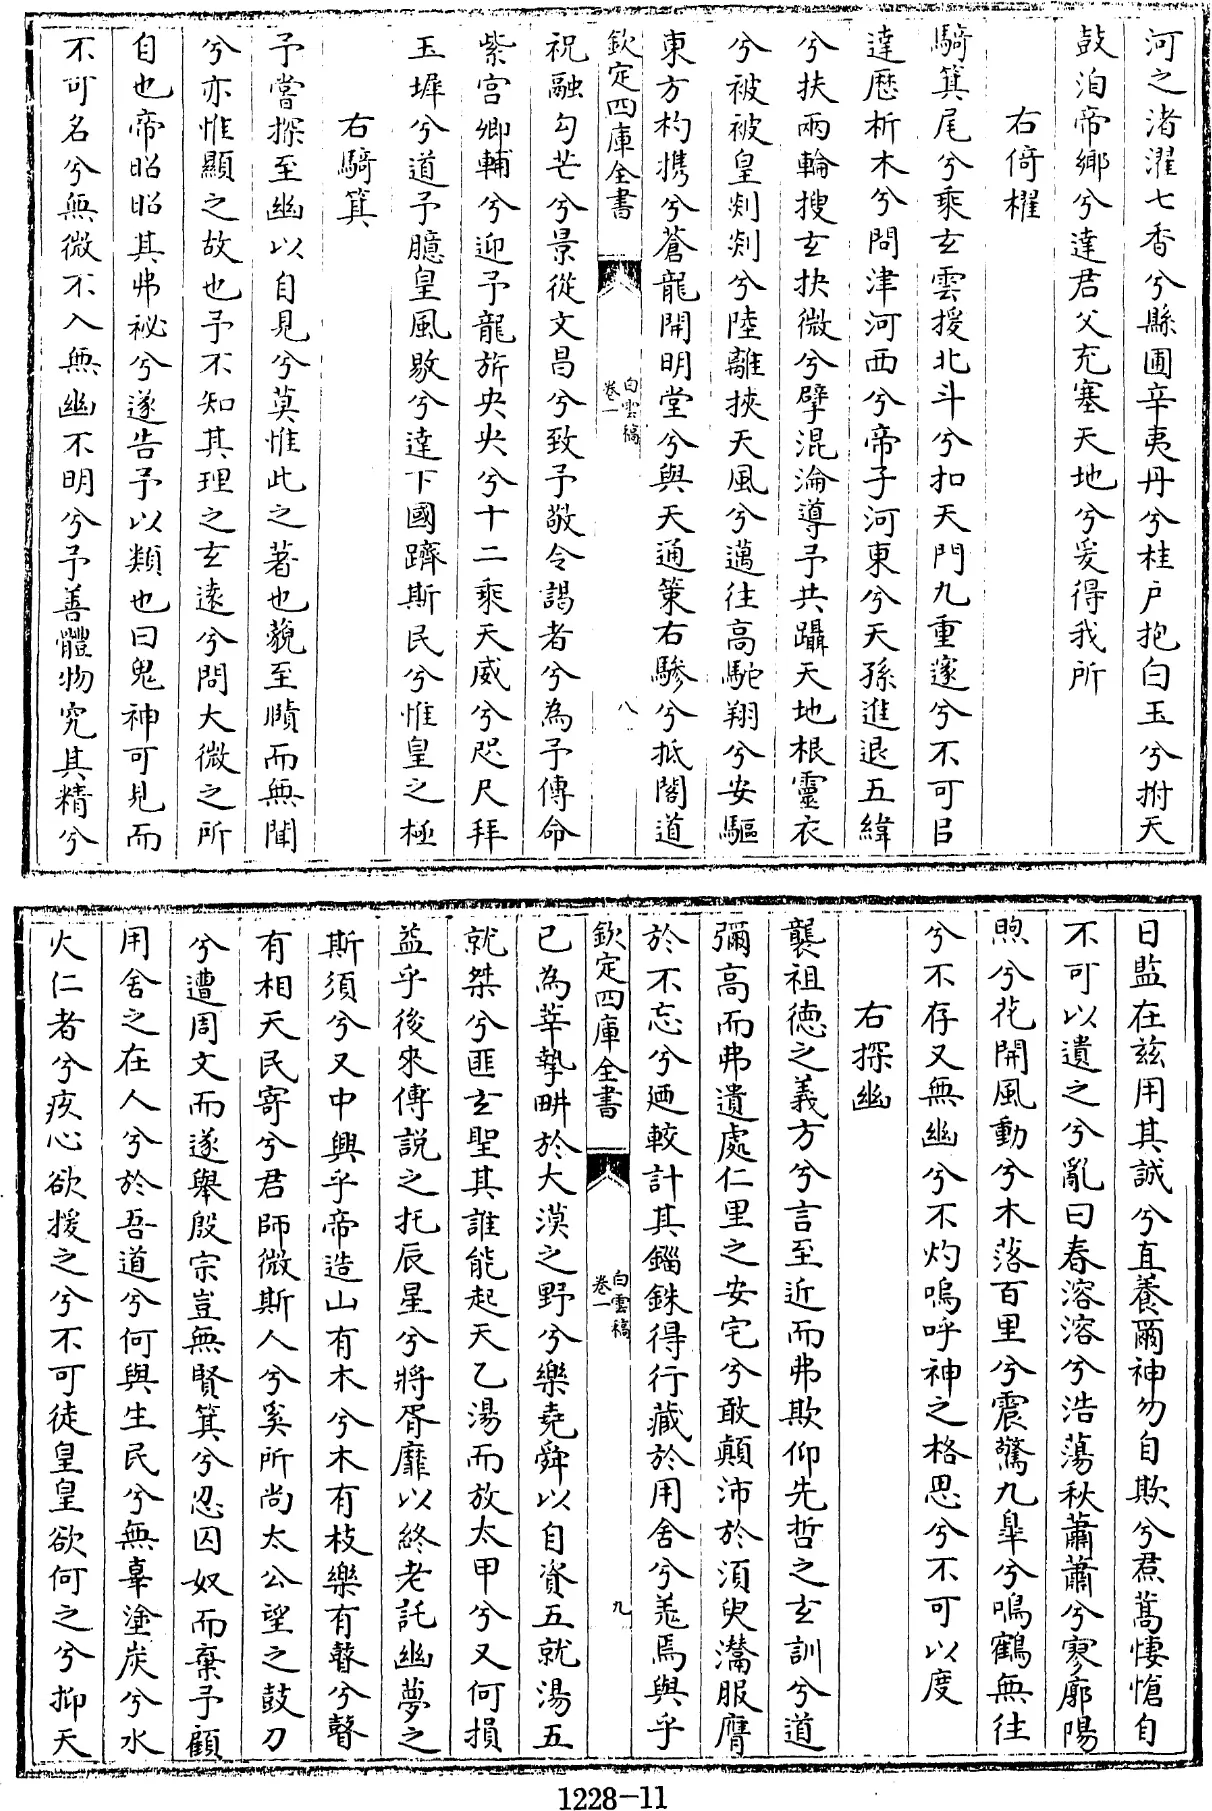 河之渚濯七香兮縣圃辛夷丹兮桂戶抱白玉兮拊天
鼓泊帝鄉兮達君父充塞天地兮爰得我所
右倚櫂
騎箕尾兮乘玄雲援北斗兮扣天門九重邃兮不可㠯
達歷析木兮問津河西兮帝子河東兮天孫進退五緯
兮扶兩輪搜玄抉微兮擘混淪導予共躡天地根靈衣
兮被被皇剡剡兮陸離挾天風兮邁往高馳翔兮安驅
東方杓攜兮蒼龍開明堂兮與天通策右驂兮抵閣道
欽定四庫全書
白雲稿
卷一
八
祝融勾芒兮景從文昌兮致予敬令謁者兮為予傳命
紫宮卿輔兮迎予龍旂央央兮十二乘天威兮咫尺拜
玉墀兮道予臆皇風敭兮達下國躋斯民兮惟皇之極
右騎箕
予嘗探至幽以自見兮莫惟此之著也藐至賾而無閳
兮亦惟顯之故也予不知其理之玄遠兮問大微之所
自也帝昭昭其弗祕兮遂告予以類也曰鬼神可見而
不可名兮無微不入無幽不明兮予善體物究其精兮
日監在茲用其誠兮直養爾神勿自欺兮焄蒿悽愴自
不可以遺之兮亂曰春溶溶兮浩蕩秋蕭蕭兮寥廓陽
煦兮花開風動兮木落百里兮震驚九臯兮鳴鶴無往
兮不存又無幽兮不灼嗚呼神之格思兮不可以度
右探幽
襲祖德之義方兮言至近而弗欺仰先哲之玄訓兮道
彌高而弗遺處仁里之安宅兮敢顛沛於須臾灊服膺
於不忘兮廼較計其錙銖得行藏於用舍兮羗焉與乎
欽定四庫全書
白雲稿
卷一
九
已為莘摯畊於大漠之野兮樂堯舜以自資五就湯五
就桀兮匪玄聖其誰能起天乙湯而放太甲兮又何損
益乎後來傳説之托辰星兮將胥靡以終老託幽夢之
斯須兮又中興乎帝造山有木兮木有枝樂有瞽兮瞽
有相天民寄兮君師微斯人兮奚所尚太公望之鼓刀
兮遭周文而遂舉殷宗豈無賢箕兮忍囚奴而棄予顧
用舍之在人兮於吾道兮何與生民兮無辜塗炭兮水
火仁者兮疚心欲援之兮不可徒皇皇欲何之兮抑天
1228-11